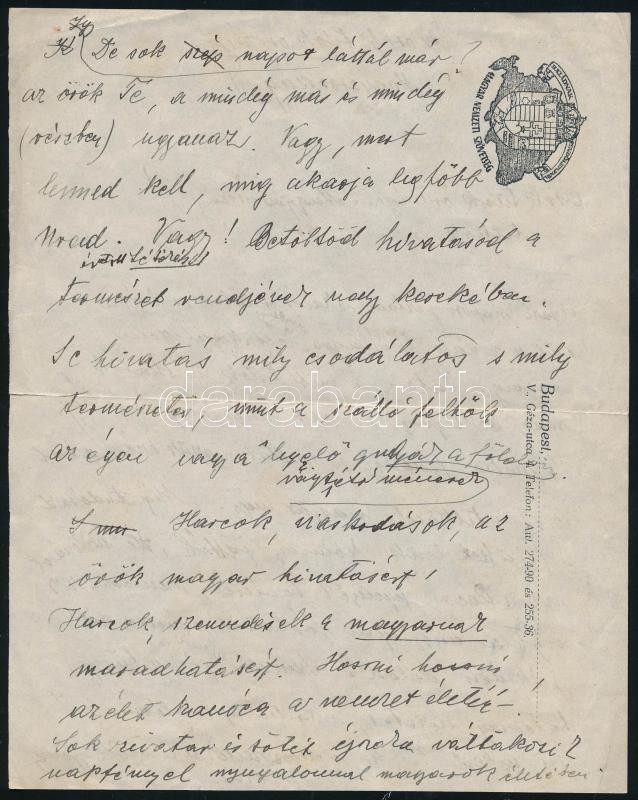 Így
De sok szép napot láttál már?
az örök Te, a mindég más és mindég
(részben) ugyanaz. Vagy, mert
lenned kell, míg akarja legfőbb
Urad. Vagy! Betöltöd hivatásod a
természet rendjének nagy kerekében.
Se hivatás mily csodálatos s mily
természetes, mint a szálló felhők
az égen vagy a legelő gulyák a földön
vágtató ménesek
Harcok, viaskodások, az
örök magyar hivatásért!
Harcok, szenvedések a magyarnak
maradhatásért. Hozni hozni
az élet kanóca a nemzet életé-!
Sok zivatar és sötét éjszaka váltakozik
napfénnyel nyugalommal magyarok életében
MAGYAR NEMZETI SZÖVETSÉG
Budapest,
V., Géza-utca 4. Telefon: Aut. 274-90 és 255-36.
darabanth